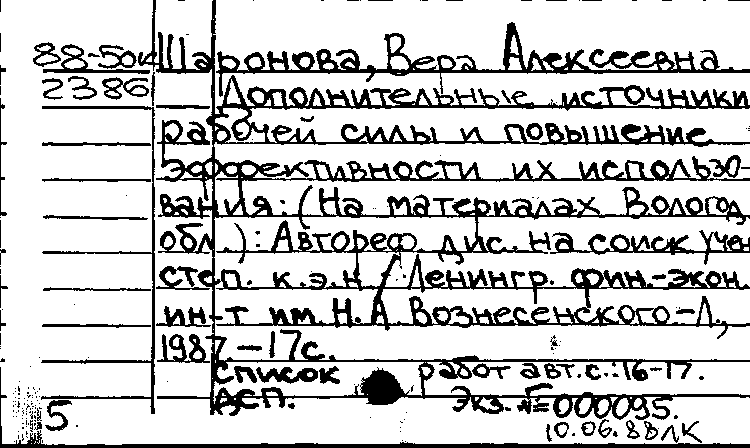 88-50к Шаронова, Вера Алексеевна.
2386 Дополнительные источники
рабочей силы и повышение
эффективности их использо-
вания: (На материалах Вологод.
обл.): Автореф. дис. на соиск учен
степ. к.э.н. / Ленингр. фин.-экон.
ин-т им. Н.А. Вознесенского.-Л.,
1987.-17с.
Список работ авт. с.: 16-17.
ДСП. Экз. №000095.
5 10.06.88 ЛК